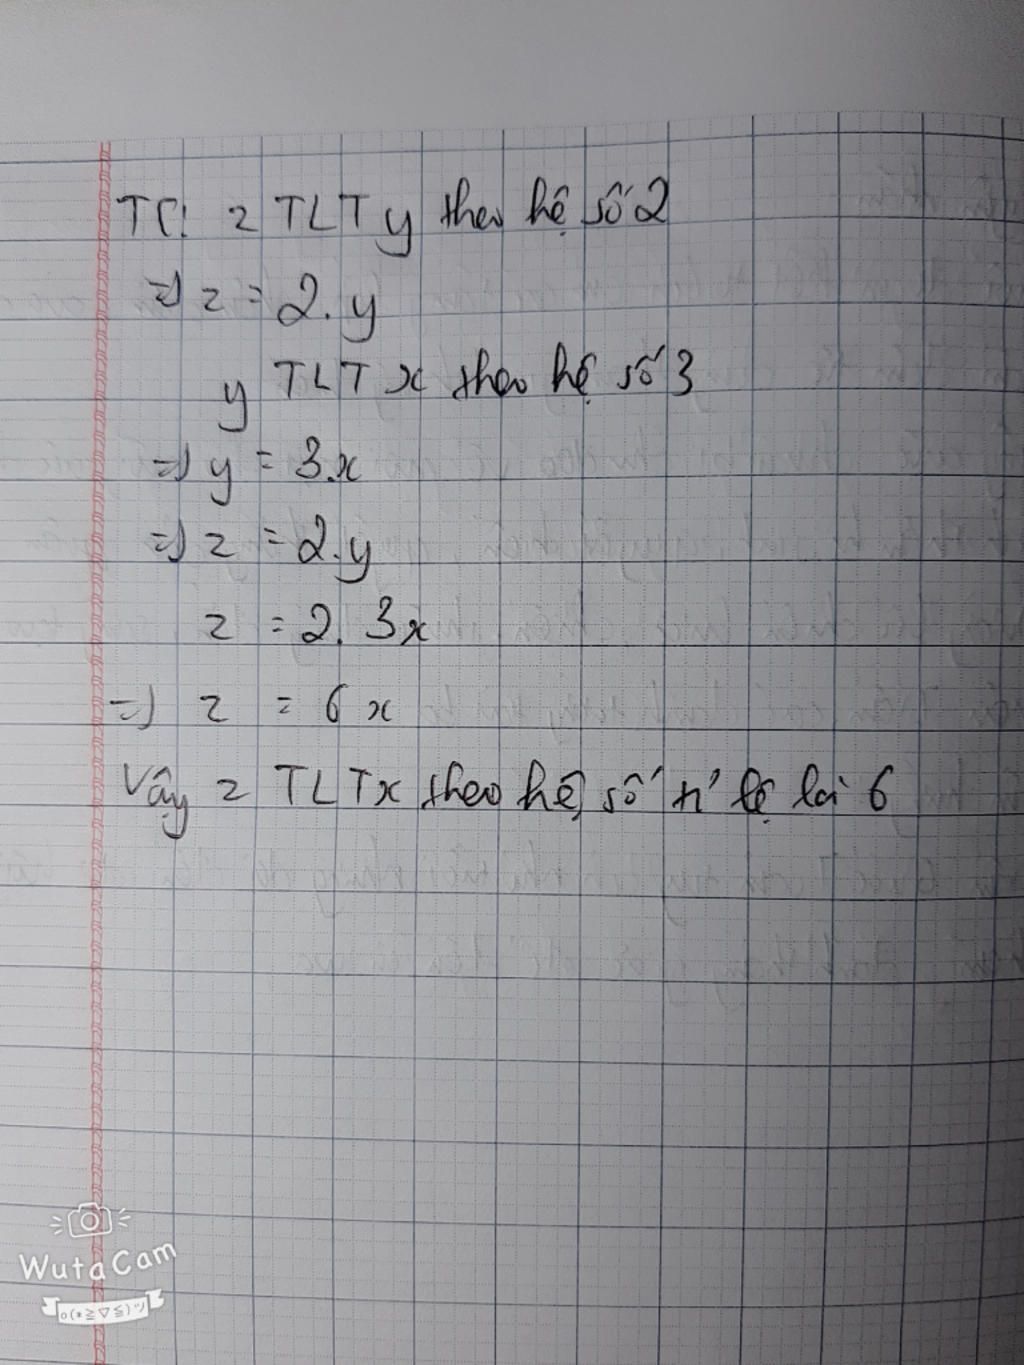 TC: z TLT y theo hệ số 2
=> z = 2.y
y TLT x theo hệ số 3
=> y = 3.x
=> z = 2.y
z = 2. 3x
=> z = 6x
Vậy z TLT x theo hệ số tỉ lệ là 6
WutaCam
o(*≧▽≦)ツ